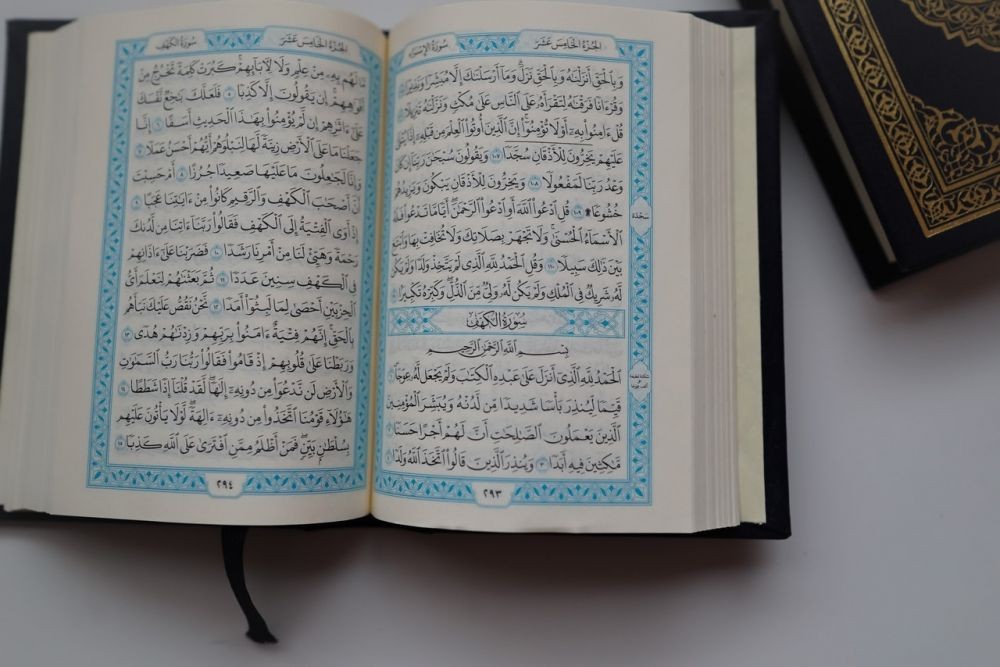 الجزء الخامس عشر
سورة الإسراء
وَبِالْحَقِّ أَنزَلْنَٰهُ وَبِالْحَقِّ نَزَلَ ۗ وَمَآ أَرْسَلْنَٰكَ إِلَّا مُبَشِّرًا وَنَذِيرًا ١٠٥
وَقُرْءَانًا فَرَقْنَٰهُ لِتَقْرَأَهُۥ عَلَى النَّاسِ عَلَىٰ مُكْثٍ وَنَزَّلْنَٰهُ تَنزِيلًا ١٠٦
قُلْ ءَامِنُوا۟ بِهِۦٓ أَوْ لَا تُؤْمِنُوٓا۟ ۚ إِنَّ الَّذِينَ أُوتُوا۟ الْعِلْمَ مِن قَبْلِهِۦٓ إِذَا يُتْلَىٰ
عَلَيْهِمْ يَخِرُّونَ لِلْأَذْقَانِ سُجَّدًا ١٠٧ وَيَقُولُونَ سُبْحَٰنَ رَبِّنَآ إِن كَانَ
وَعْدُ رَبِّنَا لَمَفْعُولًا ١٠٨ وَيَخِرُّونَ لِلْأَذْقَانِ يَبْكُونَ وَيَزِيدُهُمْ
خُشُوعًا ۩ ١٠٩ قُلِ ادْعُوا۟ اللَّهَ أَوِ ادْعُوا۟ الرَّحْمَٰنَ ۖ أَيًّا مَّا تَدْعُوا۟ فَلَهُ
الْأَسْمَآءُ الْحُسْنَىٰ ۚ وَلَا تَجْهَرْ بِصَلَاتِكَ وَلَا تُخَافِتْ بِهَا وَابْتَغِ
بَيْنَ ذَٰلِكَ سَبِيلًا ١١٠ وَقُلِ الْحَمْدُ لِلَّهِ الَّذِى لَمْ يَتَّخِذْ وَلَدًا وَلَمْ يَكُن
لَّهُۥ شَرِيكٌ فِى الْمُلْكِ وَلَمْ يَكُن لَّهُۥ وَلِىٌّ مِّنَ الذُّلِّ ۖ وَكَبِّرْهُ تَكْبِيرًۢا ١١١
سُورَةُ الكَهْفِ
بِسْمِ اللَّهِ الرَّحْمَٰنِ الرَّحِيمِ
الْحَمْدُ لِلَّهِ الَّذِىٓ أَنزَلَ عَلَىٰ عَبْدِهِ الْكِتَٰبَ وَلَمْ يَجْعَل لَّهُۥ عِوَجَا ۜ ١
قَيِّمًا لِّيُنذِرَ بَأْسًا شَدِيدًا مِّن لَّدُنْهُ وَيُبَشِّرَ الْمُؤْمِنِينَ
الَّذِينَ يَعْمَلُونَ الصَّٰلِحَٰتِ أَنَّ لَهُمْ أَجْرًا حَسَنًا ٢
مَّٰكِثِينَ فِيهِ أَبَدًا ٣ وَيُنذِرَ الَّذِينَ قَالُوا۟ اتَّخَذَ اللَّهُ وَلَدًا ٤
٢٩٣
سجدة
الجزء الخامس عشر
سورة الكهف
مَّا لَهُم بِهِۦ مِنْ عِلْمٍ وَلَا لِءَابَآئِهِمْ ۚ كَبُرَتْ كَلِمَةً تَخْرُجُ مِنْ
أَفْوَٰهِهِمْ ۚ إِن يَقُولُونَ إِلَّا كَذِبًا ٥ فَلَعَلَّكَ بَٰخِعٌ نَّفْسَكَ
عَلَىٰٓ ءَاثَٰرِهِمْ إِن لَّمْ يُؤْمِنُوا۟ بِهَٰذَا الْحَدِيثِ أَسَفًا ٦ إِنَّا
جَعَلْنَا مَا عَلَى الْأَرْضِ زِينَةً لَّهَا لِنَبْلُوَهُمْ أَيُّهُمْ أَحْسَنُ عَمَلًا ٧
وَإِنَّا لَجَٰعِلُونَ مَا عَلَيْهَا صَعِيدًا جُرُزًا ٨ أَمْ حَسِبْتَ
أَنَّ أَصْحَٰبَ الْكَهْفِ وَالرَّقِيمِ كَانُوا۟ مِنْ ءَايَٰتِنَا عَجَبًا ٩
إِذْ أَوَى الْفِتْيَةُ إِلَى الْكَهْفِ فَقَالُوا۟ رَبَّنَآ ءَاتِنَا مِن لَّدُنكَ
رَحْمَةً وَهَيِّئْ لَنَا مِنْ أَمْرِنَا رَشَدًا ١٠ فَضَرَبْنَا عَلَىٰٓ ءَاذَانِهِمْ
فِى الْكَهْفِ سِنِينَ عَدَدًا ١١ ثُمَّ بَعَثْنَٰهُمْ لِنَعْلَمَ أَىُّ
الْحِزْبَيْنِ أَحْصَىٰ لِمَا لَبِثُوٓا۟ أَمَدًا ١٢ نَّحْنُ نَقُصُّ عَلَيْكَ نَبَأَهُم
بِالْحَقِّ ۚ إِنَّهُمْ فِتْيَةٌ ءَامَنُوا۟ بِرَبِّهِمْ وَزِدْنَٰهُمْ هُدًى ١٣
وَرَبَطْنَا عَلَىٰ قُلُوبِهِمْ إِذْ قَامُوا۟ فَقَالُوا۟ رَبُّنَا رَبُّ السَّمَٰوَٰتِ
وَالْأَرْضِ لَن نَّدْعُوَا۟ مِن دُونِهِۦٓ إِلَٰهًا ۖ لَّقَدْ قُلْنَآ إِذًا شَطَطًا ١٤
هَٰٓؤُلَآءِ قَوْمُنَا اتَّخَذُوا۟ مِن دُونِهِۦٓ ءَالِهَةً ۖ لَّوْلَا يَأْتُونَ عَلَيْهِم
بِسُلْطَٰنٍۭ بَيِّنٍ ۖ فَمَنْ أَظْلَمُ مِمَّنِ افْتَرَىٰ عَلَى اللَّهِ كَذِبًا ١٥
٢٩٤